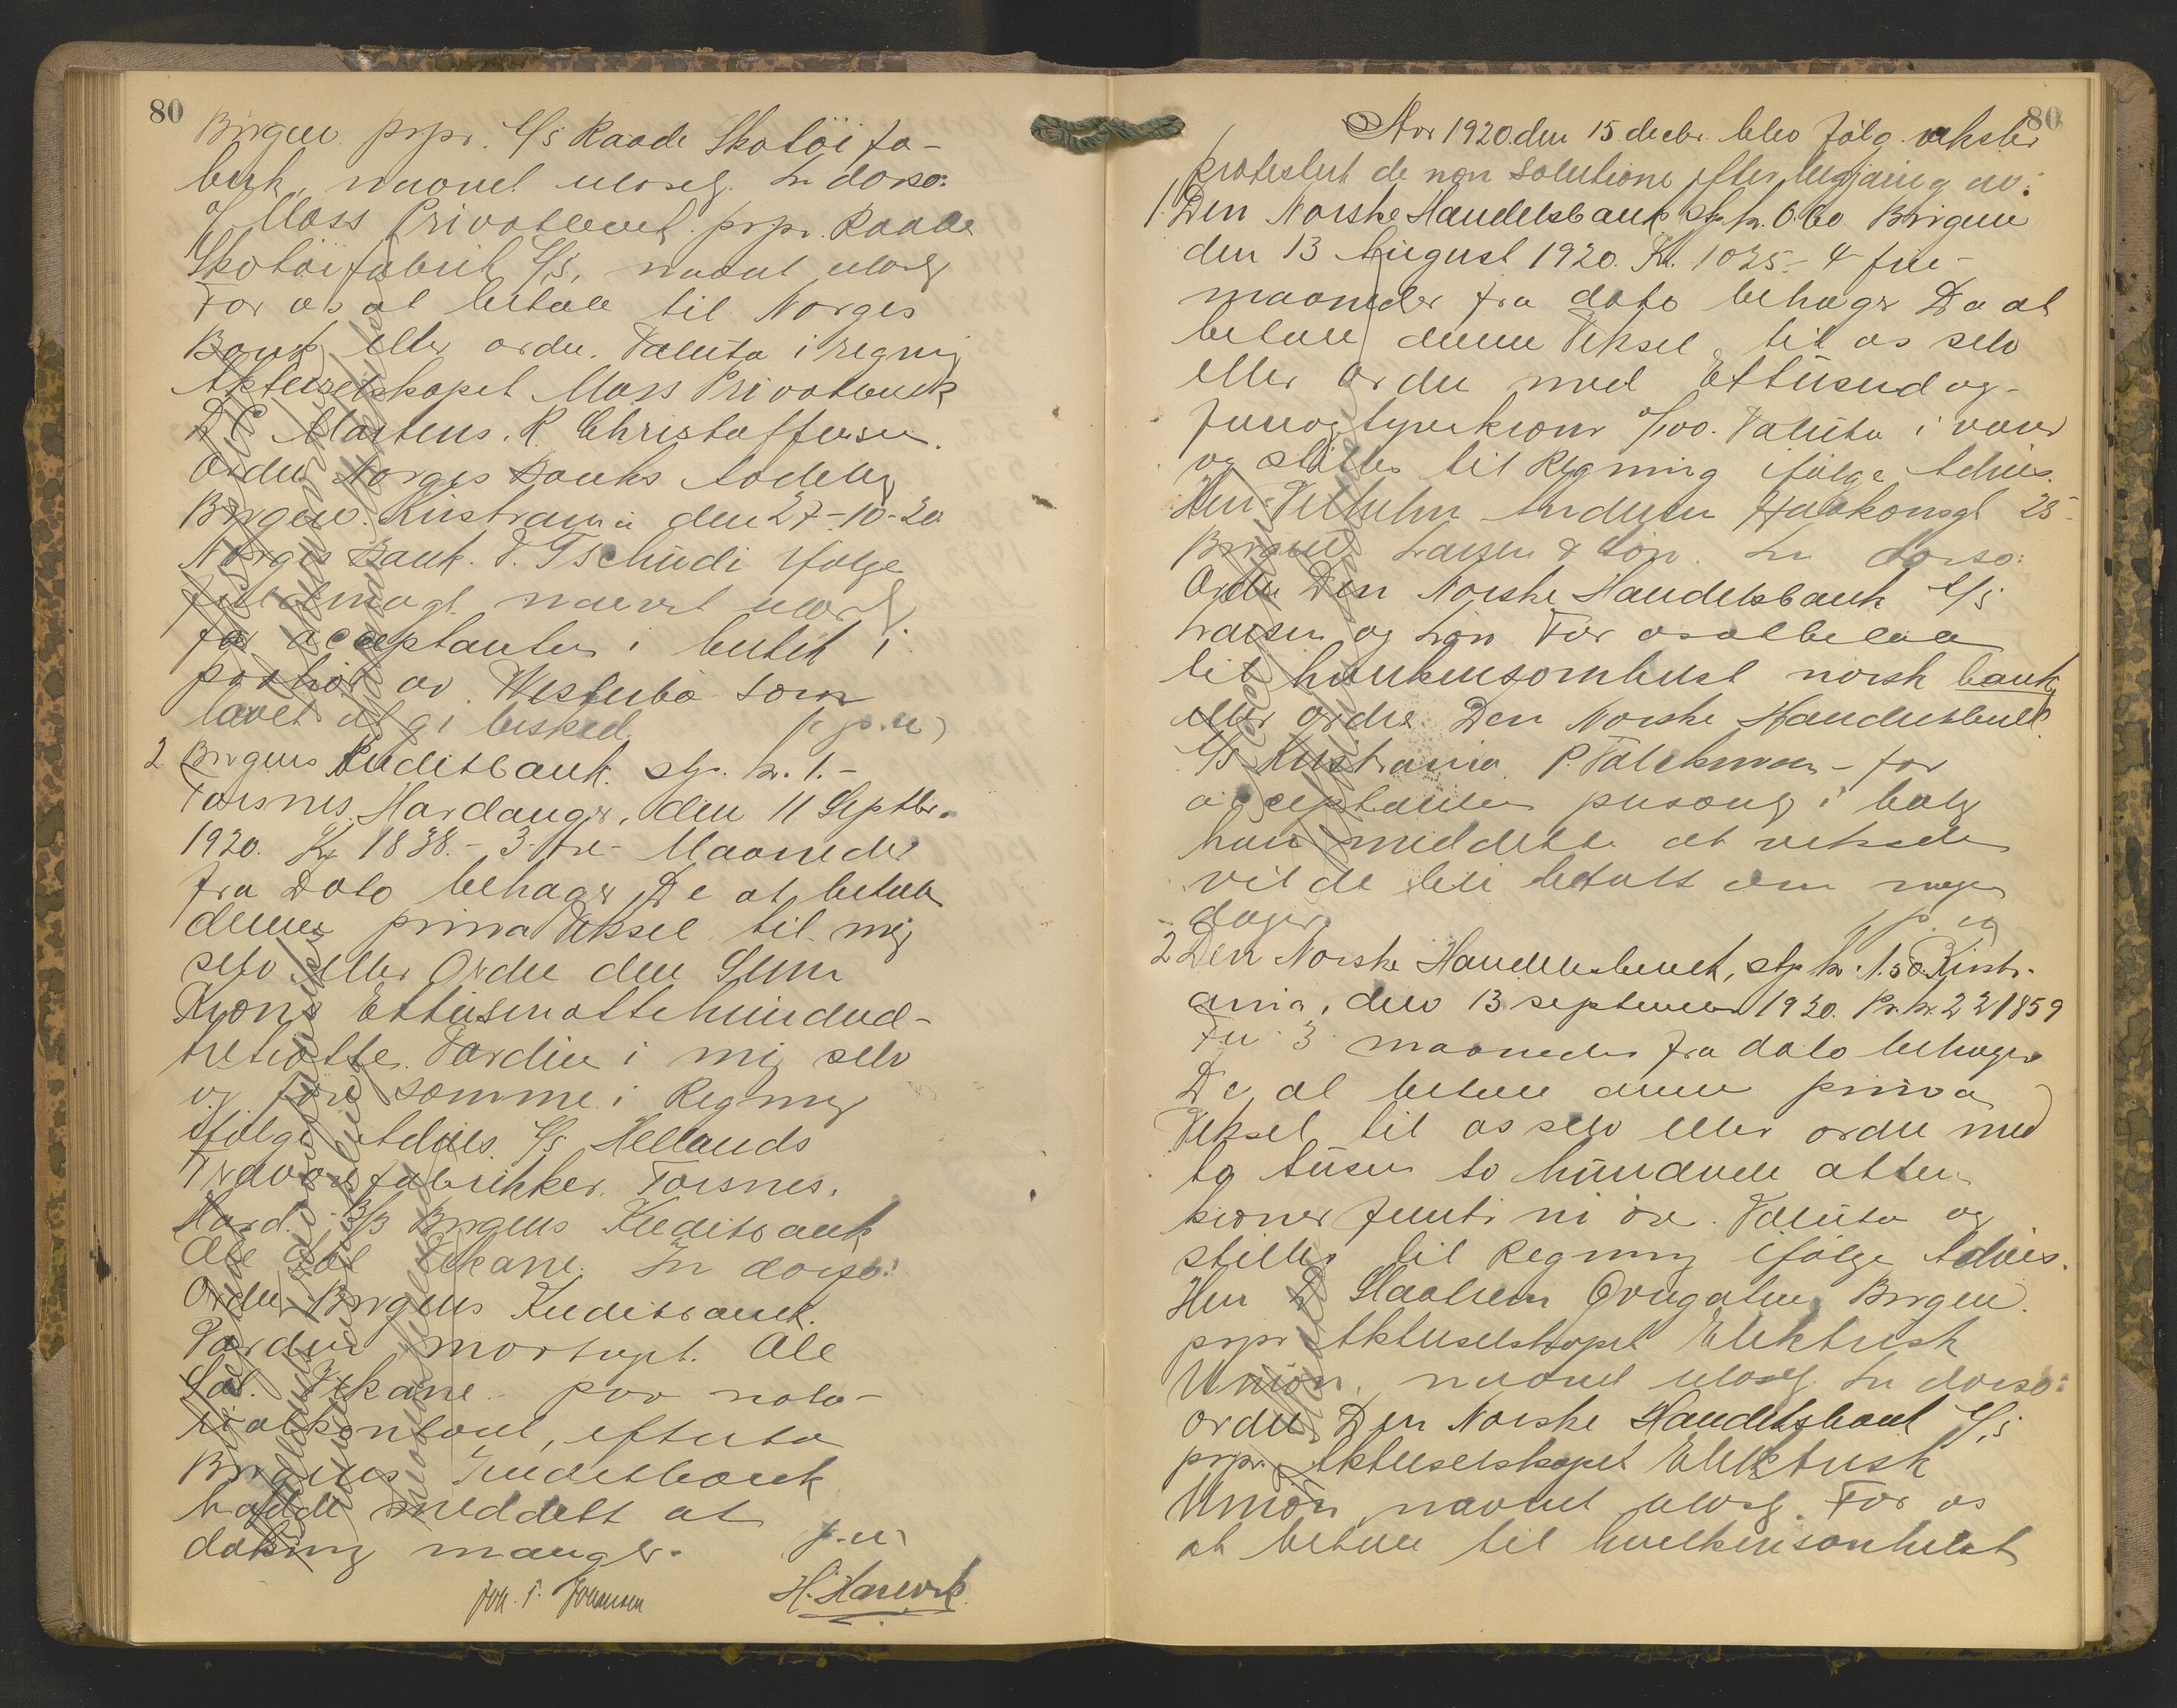 80
Bergen prpr. A/S Raade Skotöi fa-
brik, navnet ulæselg. In dorso:
A/S Moss Privatbank prpr. Raade
Skotöifabrik A/S, navnet ulæselg
For os at betale til Norges
Bank eller ordre. Valuta i regning
Aktieselskapet Moss Privatbank
Martens. R. Christoffersen.
Ordre Norges Banks Avdeling
Bergen. Kristiania den 27-10-20
Norges Bank. V. Tschudi ifölge
fuldmagt navnet ulæselg
for acceptanten i butik i
av Westerbö som
lovet at gi besked. p. u)
2 Bergens Kreditbank. stp. kr. 1.-
Torsnes Hardanger, den 11 Septbr.
1920. Kr 1838.- 3 tre Maaneder
fra Dato behager De at betale
denne prima Veksel til mig
selv eller Ordre den Sum
Kroner Ettusenottehundred-
treti otte. Værdien i mig selv
og före samme i Regning
ifölge Advis. A/S Hellands
Trævarefabrikker. Torsnes.
Hard. Bergens Kreditbank
Ole Sal. Vikane. In dorso:
Ordre Bergens Kreditbank.
Værdien mottagt. Ole
Sal. Vikane. paa nota-
rialkontoret, efterat
Bergens Kreditbank
hadde meddelt at
dækning mangler. p. u)
Joh. T. Johansen H. Hanevik
80
Aar 1920. den 15. decbr. blev fölg. veksler
protestert de non solutione efter begjæring av:
1. Den Norske Handelsbank stp. kr. 0.60 Bergen
den 13 August 1920. Kr. 1025.- 4 fire
maaneder fra dato behager De at
betale denne Veksel til os selv
eller ordre med Ettusend og-
femogtyve kroner 0/100. Valuta i varer
og stilles til Regning ifölge Advis.
Herr Vilhelm Andersen Haakonsgt 25
Bergen Larsen & Sön. In dorso:
Ordre Den Norske Handelsbank A/S
Larsen og Sön. For os at betale
til hvilkensomhelst norsk bank
eller ordre. Den Norske Handelsbank
A/S Kristiania P. Falckmoen - for
acceptanten personlig i bolig
han meddelte at vekselen
vilde bli betalt om nogen
dager. p. u)
2 Den Norske Handelsbank, stp. kr. 1.50. Kristi-
ania, den 13 september 1920. Pr. kr. 2218 59
Tre 3 maaneder fra dato behager
De at betale denne prima
Veksel til os selv eller ordre med
to tusen to hundrede atten
kroner femti ni öre. Valuta og
stilles til Regning ifölge Advis.
Herr Øvregaten Bergen.
prpr Aktieselskapet Elektrisk
Union, navnet ulæselg. In dorso:
ordre Den Norske Handelsbank A/S
prpr. Aktieselskapet Elektrisk
Union, navnet ulæselg. For os
at betale til hvilkensomhelst